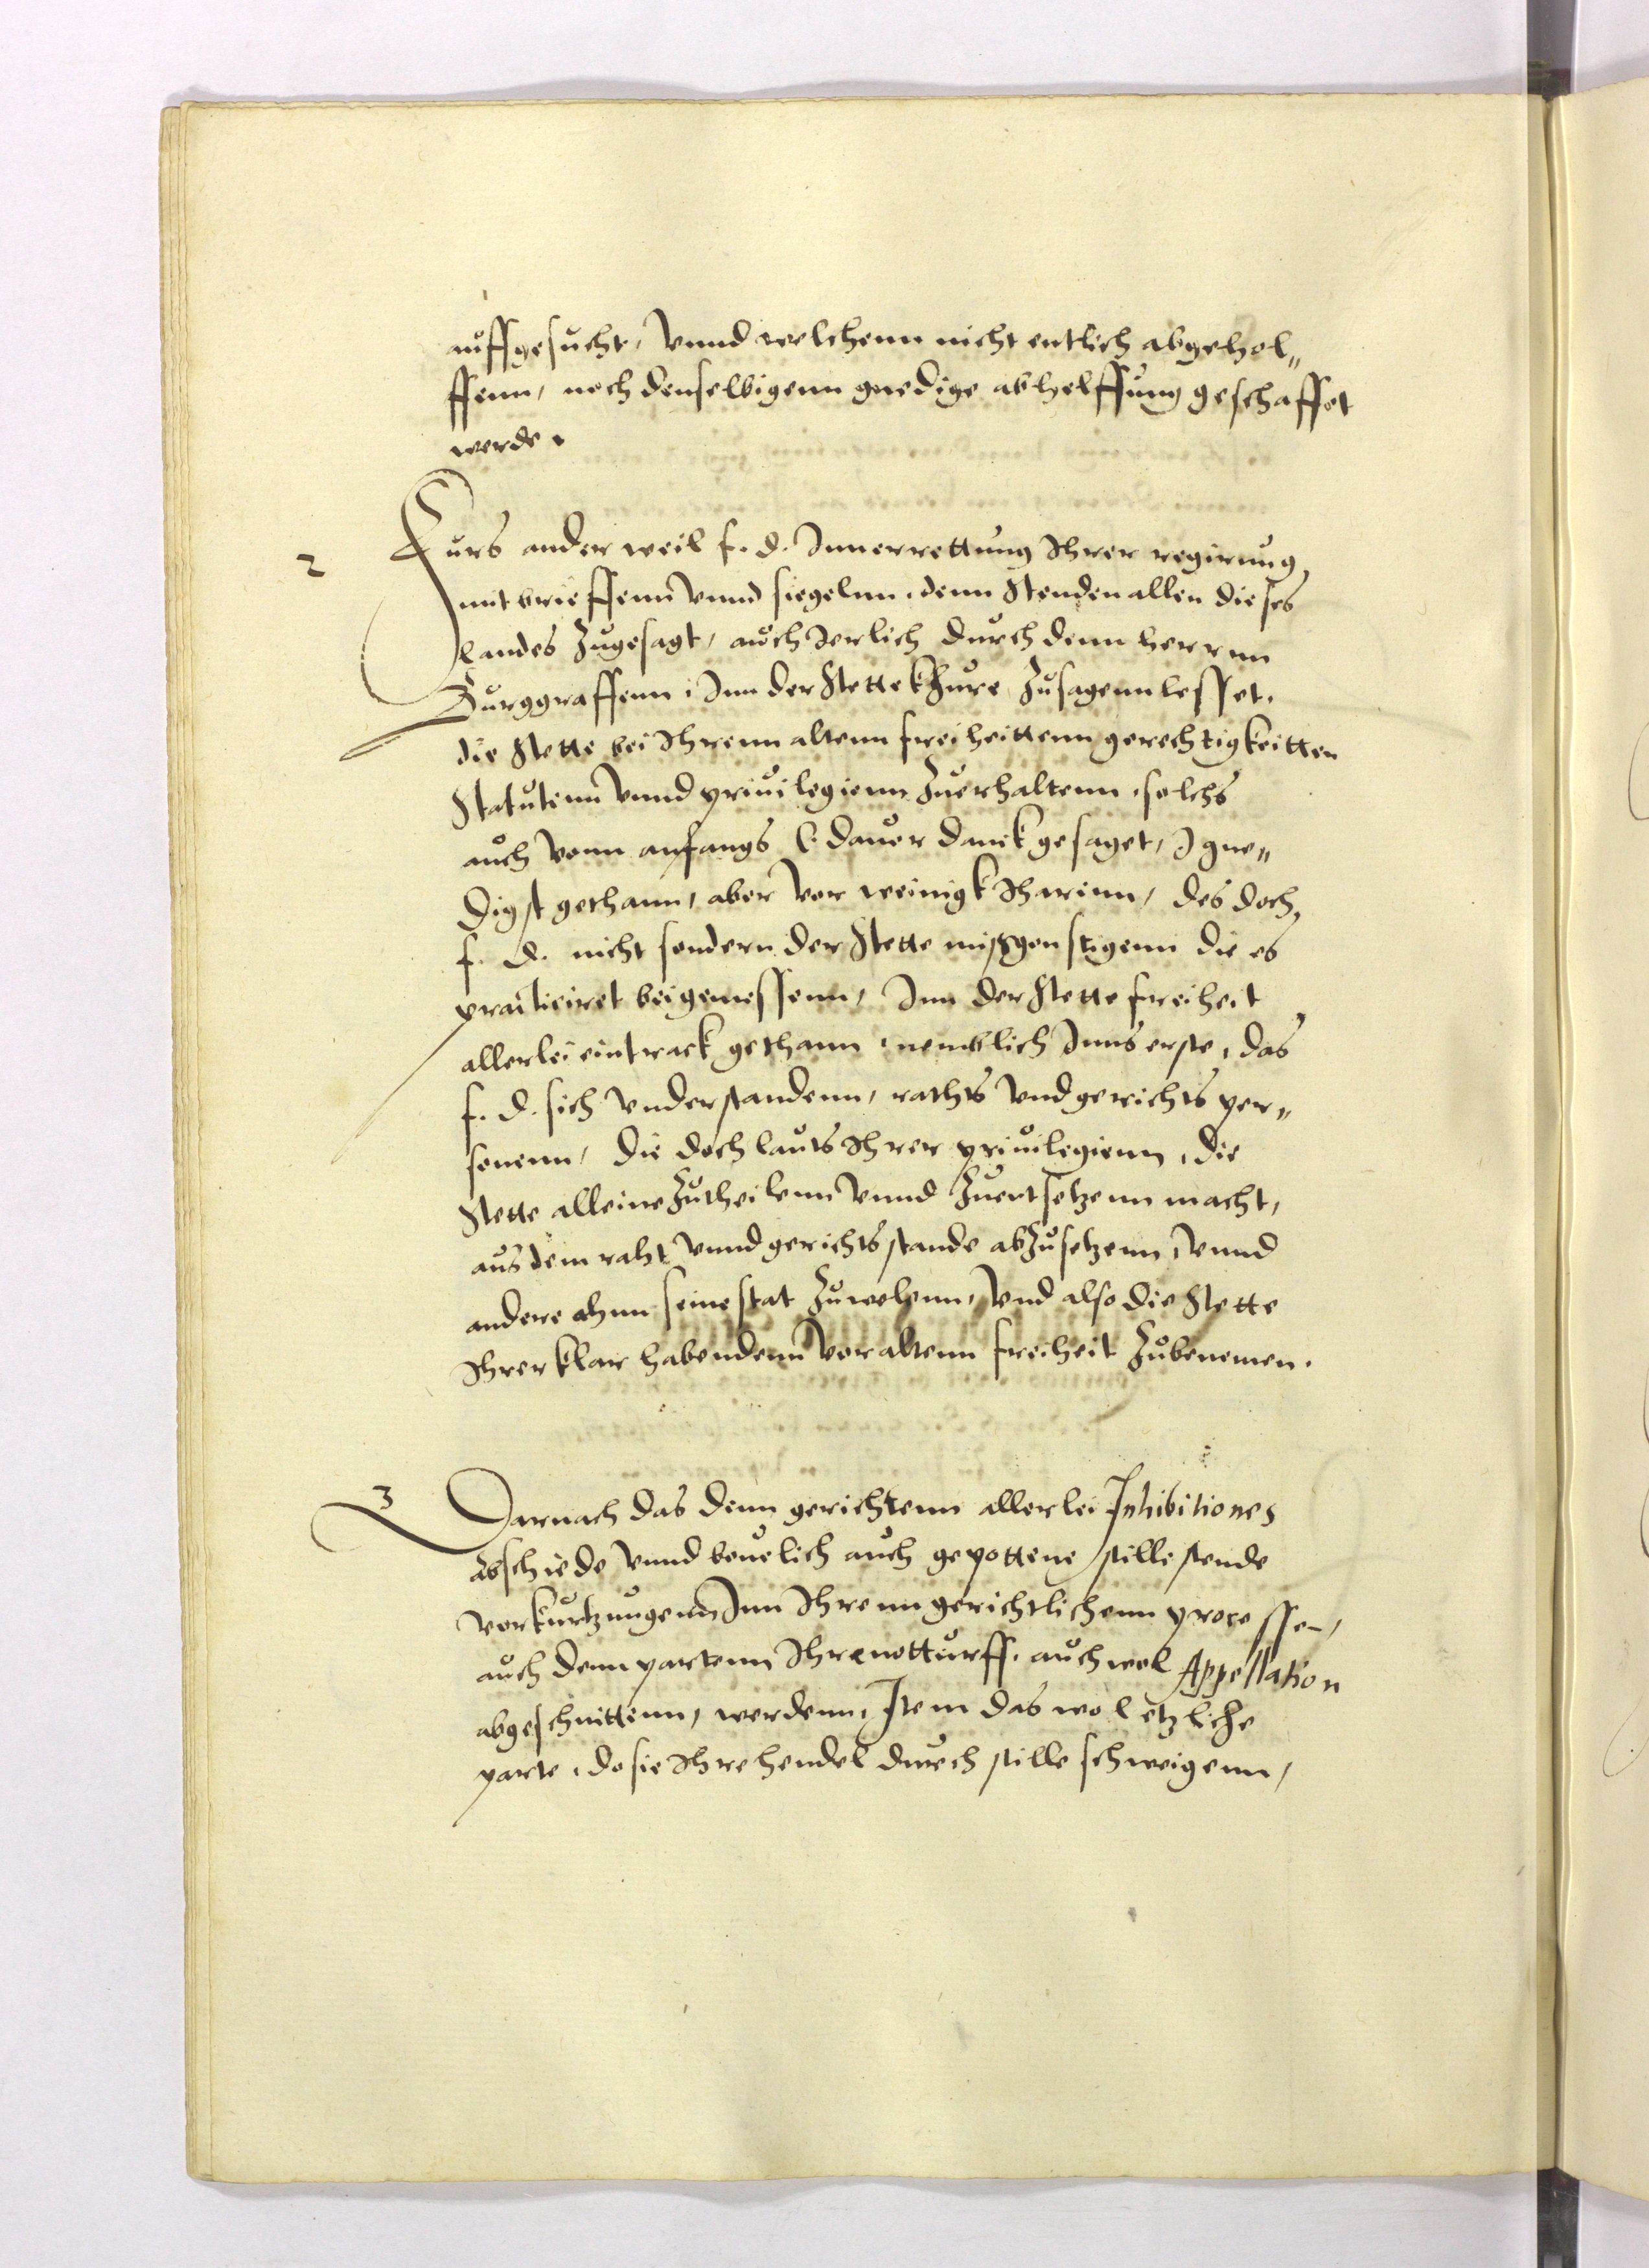 auffgesucht, Vnnd welchenn nicht entlich abgehol„
ffenn, noch denselbigenn gnedige abhelffung geschaffet
werde.
2 Furs ander weil f. d. Inn errettung Ihrer regirung,
mit brieffenn Vnnd siegelnn, denn Stenden allen dieses
landes Zugesagt, auch Jerlich durch denn herrnn
Burggraffenn, Inn der Stette kZure Zusagenn lesset,
die Stette bei Ihrenn altenn freiheittenn gerechtigkeitten
Statutenn Vnnd priuilegienn Zuerhaltenn, solchs
auch vonn anfangs (dauor danck gesaget,) gne„
digst gethann, aber Vor weinigk Iharenn, des doch
f. d. nicht sondern der Stette mißgonstigenn die es
practiciret beigemessenn, Inn der Stette freiheit
allerlei eintrack gethann, nemblich Inns erste, das
f. d. sich Vnderstandenn, rathts Vnd gerichts per„
sonenn, die doch lauts Ihrer priuilegienn, die
Stette alleine Zutheilenn Vnnd Zuertsetzenn macht,
aus dem raht Vnnd gerichts stande abZusetzenn, Vnnd
andere ahnn seine stat Zuwelenn, Vnd also die Stette
Ihrer klar habendenn Vor altenn freiheit Zubenemen.
3 Darnach das denn gerichtenn allerlei Inhibitiones
abschiede Vnnd beuelich auch gepottene stillestende
Vorkurtzungenn Inn Ihrenn gerichtlichenn processen,
auch denn partenn Ihre notturff, auch wol Appellation
abgeschnittenn, werdenn, Item das wol etzliche
parte, do sie Ihre hendel durch stille schweigenn,